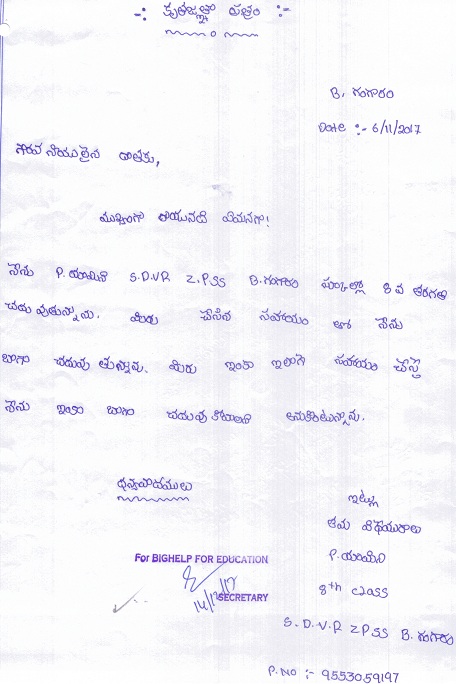 -: కృతజ్ఞతా పత్రం :-
B. గంగారం
Date :- 6/11/2017
గౌరవనీయులైన దాతకు,
ముఖ్యంగా రాయునది ఏమనగా!
నేను P. యామిని S.D.V.R Z.PSS B.గంగారం స్కూల్లో 8 వ తరగతి
చదువుతున్నాను. మీరు చేసిన సహాయం తో నేను
బాగా చదువుతున్నాను. మీరు ఇంకా ఇలాగే సహాయం చేస్తే
నేను ఇంకా బాగా చదువుకోవాలని అనుకుంటున్నాను.
ధన్యవాదములు
ఇట్లు
తమ విధేయురాలు
P. యామిని
8th class
S.D.V.R ZPSS B. గంగారం
P.NO :- 9553059197
For BIGHELP FOR EDUCATION
14/12/17
SECRETARY